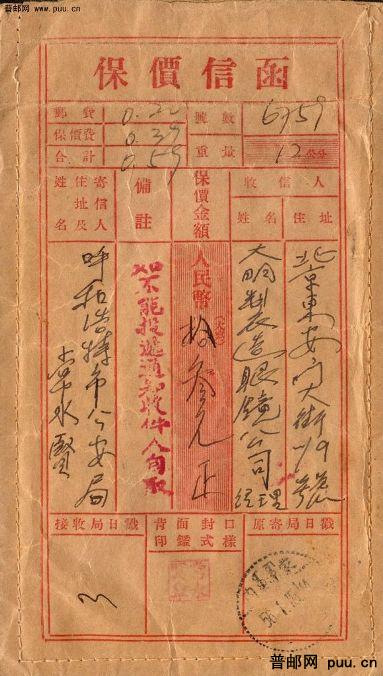 普邮网 www.puu.cn
保價信函
郵費 0.20
保價費 0.39
合計 0.59
號數 6759
重量 12 公分
收信人
住址
姓名
北京東安门大街19號
大明製造眼鏡公司
经理
保價金額
人民幣
拾叁元正
備註
如不能投遞通知收件人自取
寄信人
住址及
姓名
呼和浩特市公安局
水賢
原寄局日戳
背面封口
印鑑式樣
接收局日戳
普邮网 puu.cn